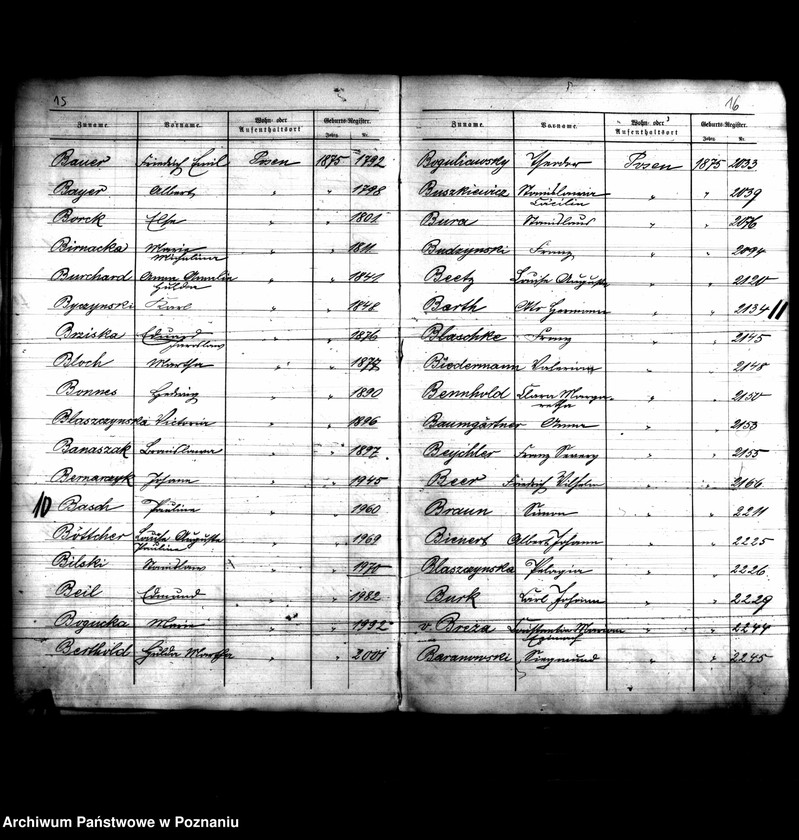 15
Zuname. Vorname. Wohn- oder Aufenthaltsort Geburts-Register.
Jahrg. Nr.
Bauer Friedrich Emil Posen 1875 1792
Bayer Albert " " 1798
Borck Else " " 1801
Birnacka Maria Michalina " " 1811
Burchard Anna Amalia Hulda " " 1841
Byczynski Karl " " 1848
Brziska Eduard " " 1876
Bloch Martha " " 1877
Bonnes Hedwig " " 1890
Blaszczynska Victoria " " 1896
Banaszak Bronislawa " " 1897
Bernarczyk Johann " " 1945
10 Basch Pauline " " 1960
Böttcher Louise Auguste Pauline " " 1969
Bilski Stanislaus " " 1970
Beil Edmund " " 1982
Bogucka Maria " " 1992
Berthold Hulda Martha " " 2001
16
Zuname. Vorname. Wohn- oder Aufenthaltsort Geburts-Register.
Jahrg. Nr.
Boguliawsky Posen 1875 2033
Buszkiewicz Stanislawa Cäcilia " " 2039
Bura Stanislaus " " 2076
Budzynski Franz " " 2094
Beetz Louise Auguste " " 2120
Barth Otto Hermann " " 2134 11
Blaschke Franz " " 2145
Biedermann Valerian " " 2148
Bennhold Clara Margaretha " " 2150
Baumgärtner Anna " " 2153
Beychler Franz Severy " " 2155
Beer Friedrich Wilhelm " " 2166
Braun Simon " " 2211
Bienert Albert Johann " " 2225
Blaszczynska Pelagia " " 2226
Burk Carl Johann " " 2229
v. Breza Constantin Marian " " 2244
Baranowski Siegmund " " 2245
Archiwum Państwowe w Poznaniu